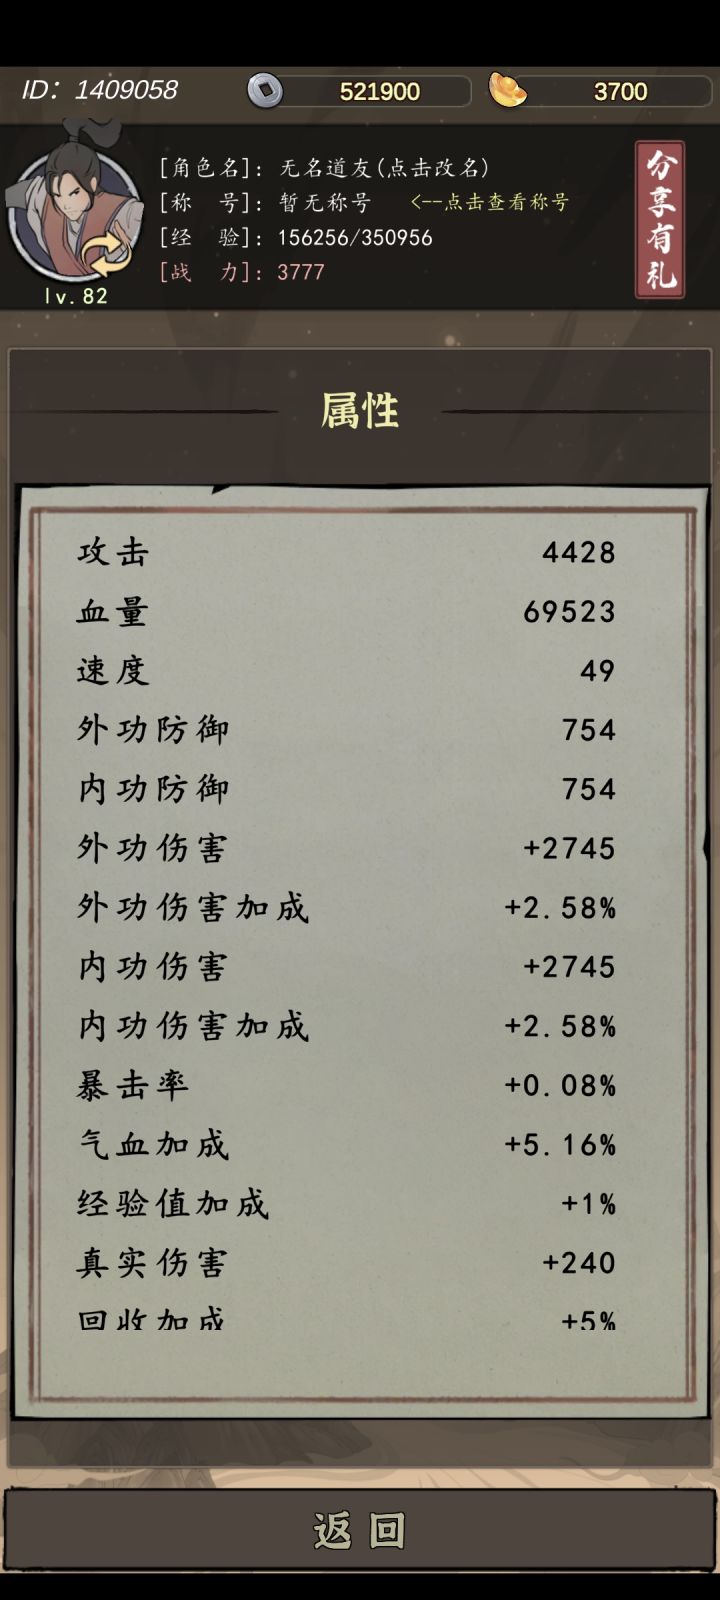 ID：1409058 521900 3700
[角色名]：无名道友(点击改名)
[称　号]：暂无称号 <--点击查看称号
[经　验]：156256/350956
[战　力]：3777
lv.82
分享有礼
属性
攻击 4428
血量 69523
速度 49
外功防御 754
内功防御 754
外功伤害 +2745
外功伤害加成 +2.58%
内功伤害 +2745
内功伤害加成 +2.58%
暴击率 +0.08%
气血加成 +5.16%
经验值加成 +1%
真实伤害 +240
回收加成 +5%
返回